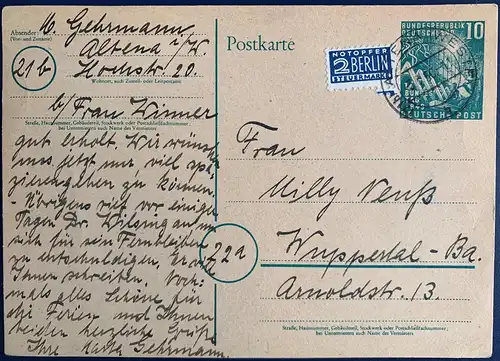 Absender:
(Vor- und Zuname)
Gehrmann
Altena i/W.
21b
Hochstr. 20.
Wohnort, auch Zustell- oder Leitpostamt
b/ Frau Winner
Straße, Hausnummer, Gebäudeteil, Stockwerk oder Postschließfachnummer,
bei Untermietern auch Name des Vermieters
gut erholt. Wir wünsch
uns jetzt nur, viel spa-
zierengehen zu können.
- Übrigens rief vor einigen
Tagen Dr. Wilsing an, um
sich für sein Fernbleiben
zu entschuldigen. Er will
Ihnen schreiben. Noch-
mals alles Schöne für
die Ferien und Ihnen
beiden herzliche Grüße
Ihre Gehrmann
Postkarte
NOTOPFER
2 BERLIN
STEUERMARKE
BUNDESREPUBLIK
DEUTSCHLAND
10
DEUTSCHE POST
Frau
Milly Venß
22a
Wuppertal-Ba.
Arnoldstr. 13.
Straße, Hausnummer, Gebäudeteil, Stockwerk oder Postschließfachnummer,
bei Untermietern auch Name des Vermieters